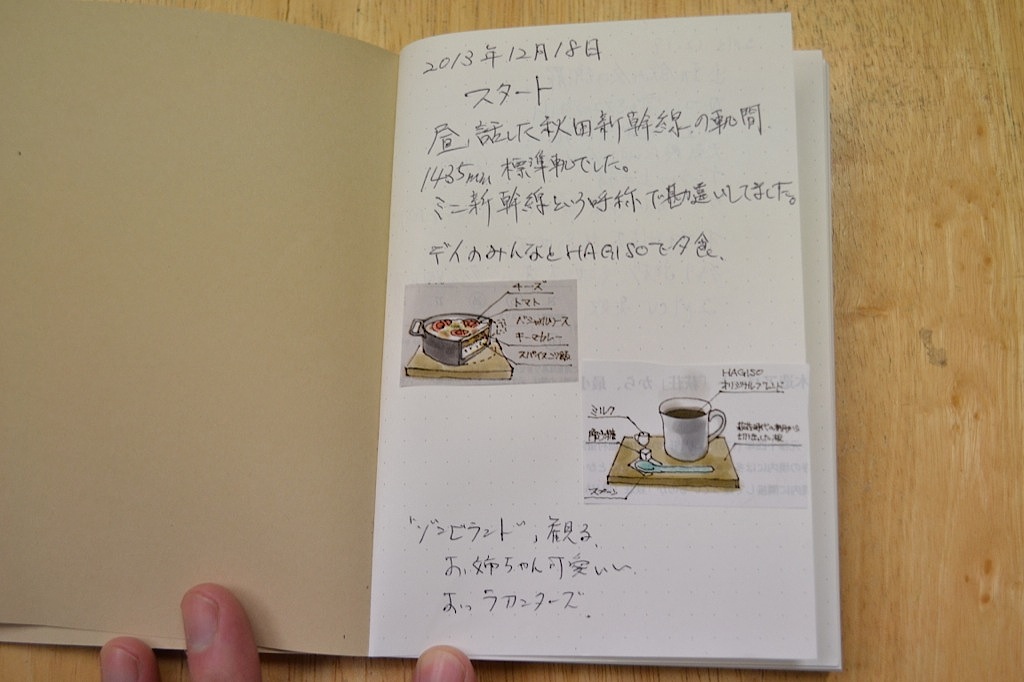 2013年12月18日
スタート
昼、話した秋田新幹線の軌間。
1435mm 標準軌でした。
ミニ新幹線という呼称で勘違いしてました。
デイのみんなとHAGISOで夕食。
チーズ
トマト
ベシャメルソース
キーマカレー
スパイスご飯
HAGISO
オリジナルブレンド
ミルク
角砂糖
スプーン
"ゾンビランド"、観る。
お姉ちゃん可愛いい。